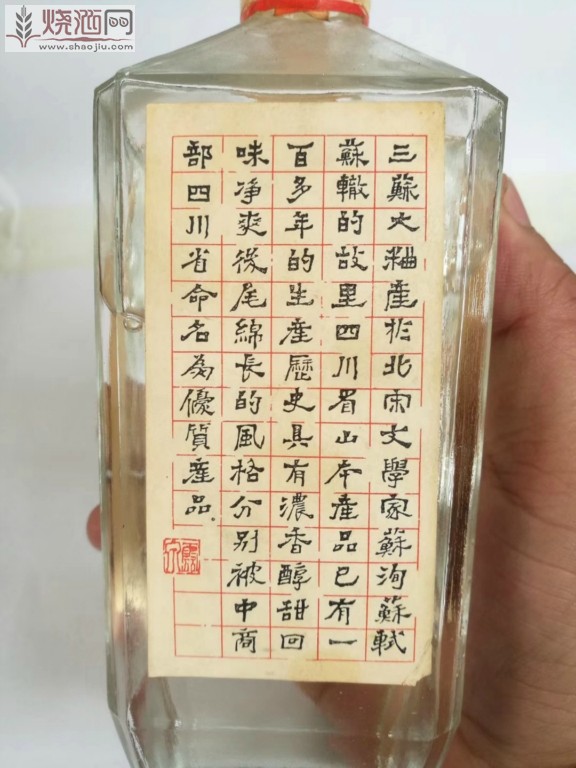 烧酒网
www.shaojiu.com
三蘇大粬產扵北宋文學家蘇洵蘇軾
蘇轍的故里四川眉山本產品已有一
百多年的生產歷史具有濃香醇甜回
味净爽後尾綿長的風格分别被中商
部四川省命名為優質產品.